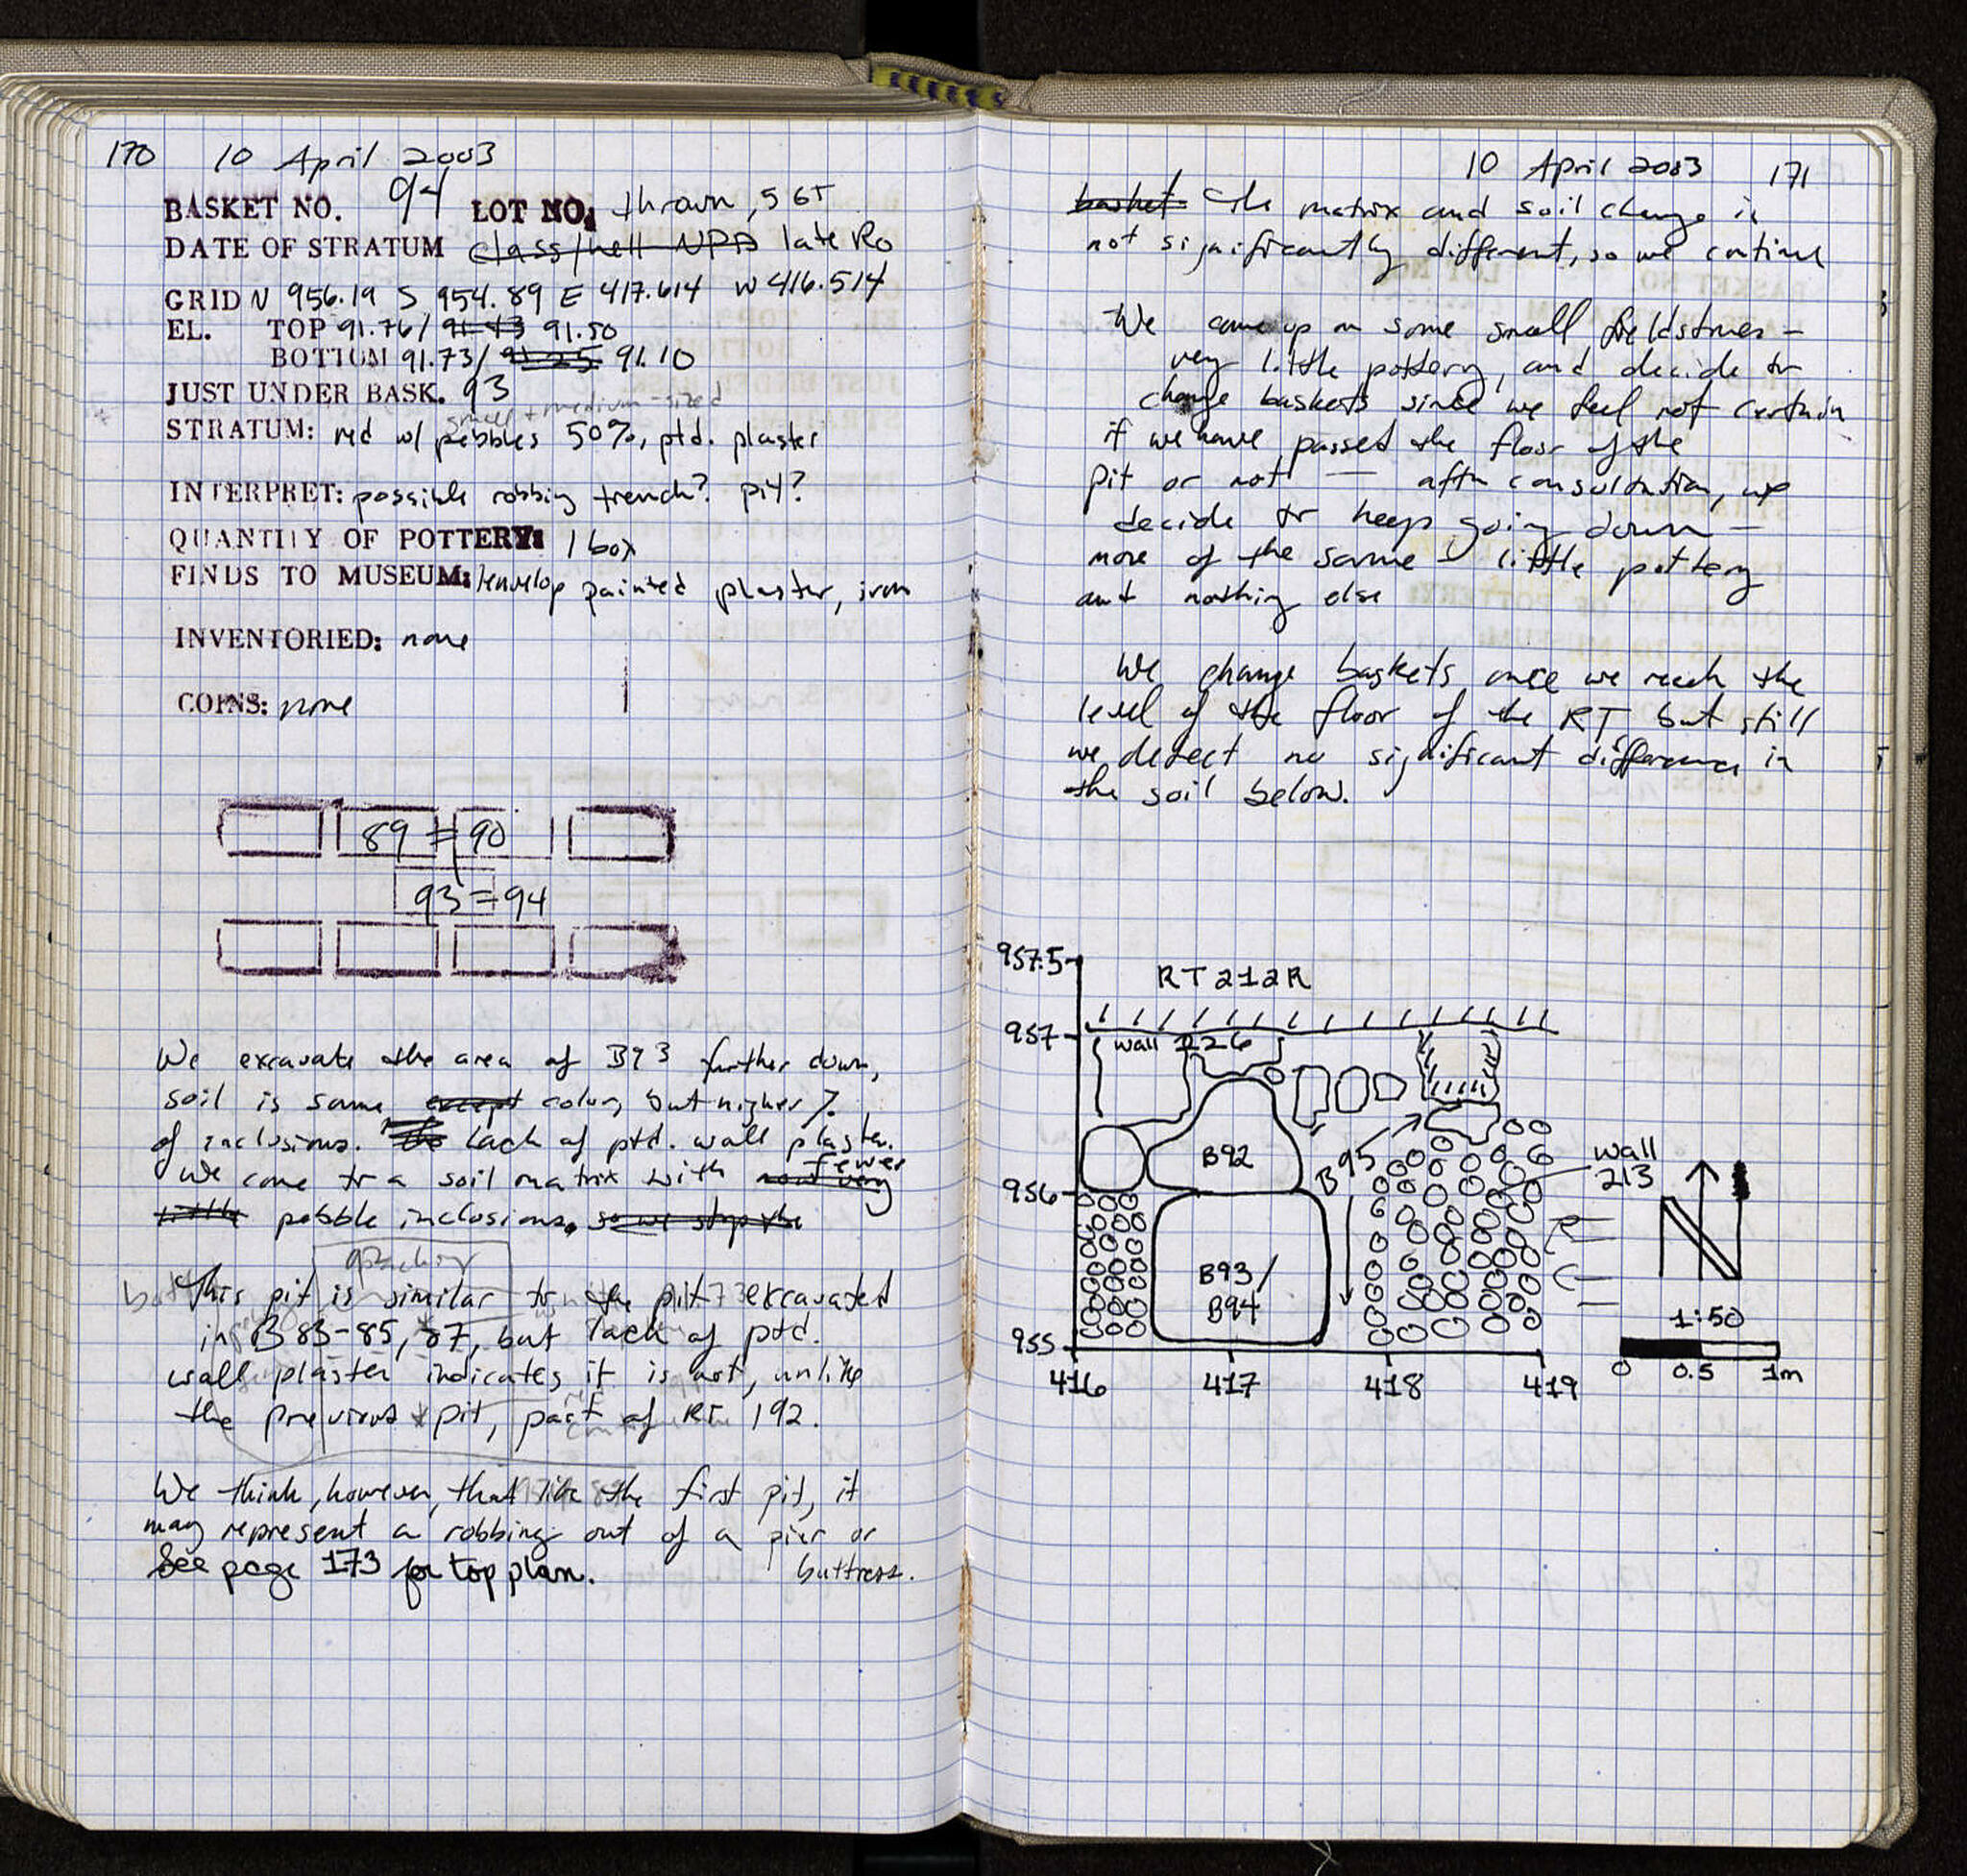 170 10 April 2003
BASKET NO. 94 LOT NO. thrown, 5 GT
DATE OF STRATUM class/hell NPD late Ro
GRID N 956.19 S 954.89 E 417.614 W 416.514
EL. TOP 91.76/ 91.43 91.50
BOTTOM 91.73/ 91.25 91.10
JUST UNDER BASK. 93
small + medium-sized
STRATUM: red w/ pebbles 50%, ptd. plaster
INTERPRET: possible robbing trench? pit?
QUANTITY OF POTTERY: 1 box
FINDS TO MUSEUM: 1 envelop painted plaster, iron
INVENTORIED: none
COINS: none
89 = 90
93 = 94
We excavate the area of B93 further down,
soil is same except color, but higher %
of inclusions. the Lack of ptd. wall plaster.
We come to a soil matrix with fewer
little pebble inclusions. so we stop the
This pit is similar to the pit excavated
in B 83-85, 87, but lack of ptd.
wall plaster indicates it is not, unlike
the previous pit, part of RT 192.
We think, however, that like the first pit, it
may represent a robbing out of a pier or
buttress.
See page 173 for top plan.
10 April 2003 171
basket. The matrix and soil change is
not significantly different, so we continue
We come up on some small fieldstones -
very little pottery, and decide to
change baskets since we feel not certain
if we have passed the floor of the
pit or not — after consultation, we
decide to keep going down —
more of the same - little pottery
and nothing else
We change baskets once we reach the
level of the floor of the RT but still
we detect no significant difference in
the soil below.
957.5
RT 212R
957
wall 226
B92
B95
wall
213
956
B93/
B94
N
1:50
955
416 417 418 419
0 0.5 1m